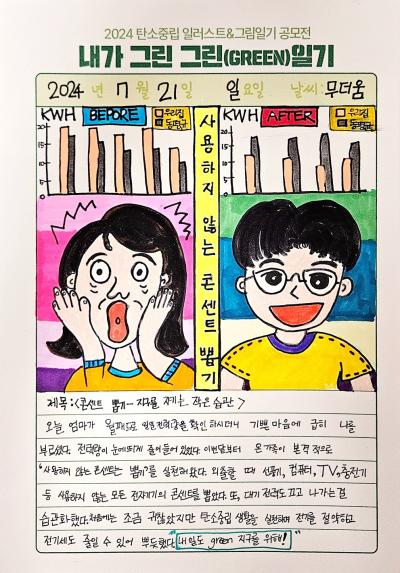 2024 탄소중립 일러스트&그림일기 공모전
내가 그린 그린(GREEN)일기
2024 년 7 월 21 일 일 요일 날씨: 무더움
KWH BEPORE 우리집 동평균
20
15
10
5
0
사용하지 않는 콘센트 뽑기
KWH AFTER 우리집 동평균
20
15
10
5
0
제목:<콘센트 뽑기- 지구를 지키는 작은 습관>
오늘 엄마가 확인 하시더니 기쁜 마음에 급히 나를
부르셨다. 전력량이 눈에띄게 줄어들어 있었다. 이번달부터 온 가족이 본격적으로
'사용하지 않는 콘센트는 뽑기'를 실천해왔다. 외출할 때 선풍기, 컴퓨터, TV, 충전기
등 사용하지 않는 모든 전자기기의 콘센트를 뽑았다. 또, 대기 전력도 끄고 나가는걸
습관화했다. 처음에는 조금 귀찮았지만 탄소중립 생활을 실천하며 전기를 절약하고
전기세도 줄일 수 있어 뿌듯했다. "내일도 green 지구를 위해!"